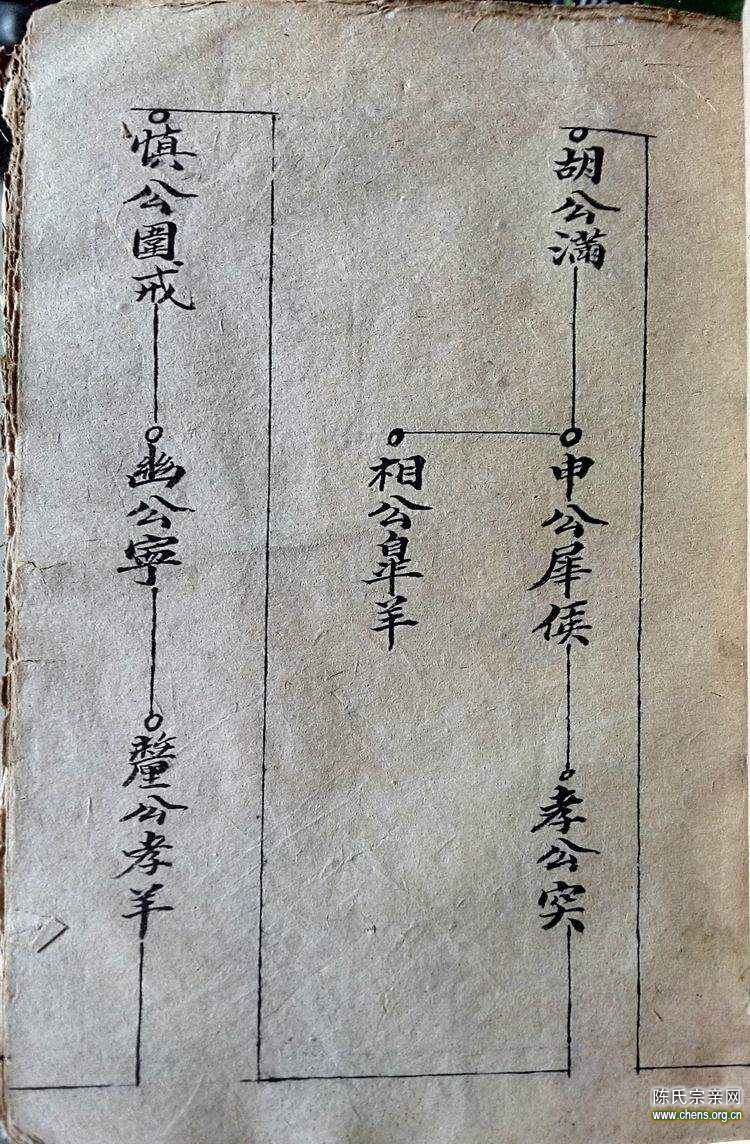 胡公滿
申公犀侯
相公臯羊
孝公突
慎公圍戎
幽公寧
釐公孝羊
陈氏宗亲网
www.chens.org.cn